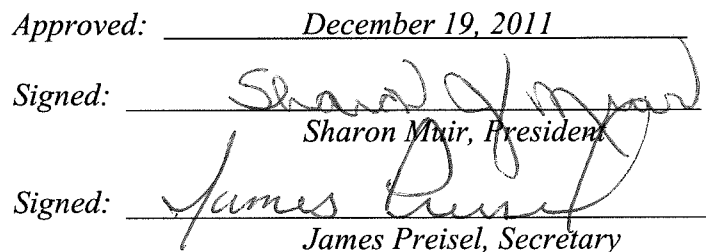 Approved: December 19, 2011
Signed: Sharon J Muir
Sharon Muir, President
Signed: James Preisel
James Preisel, Secretary